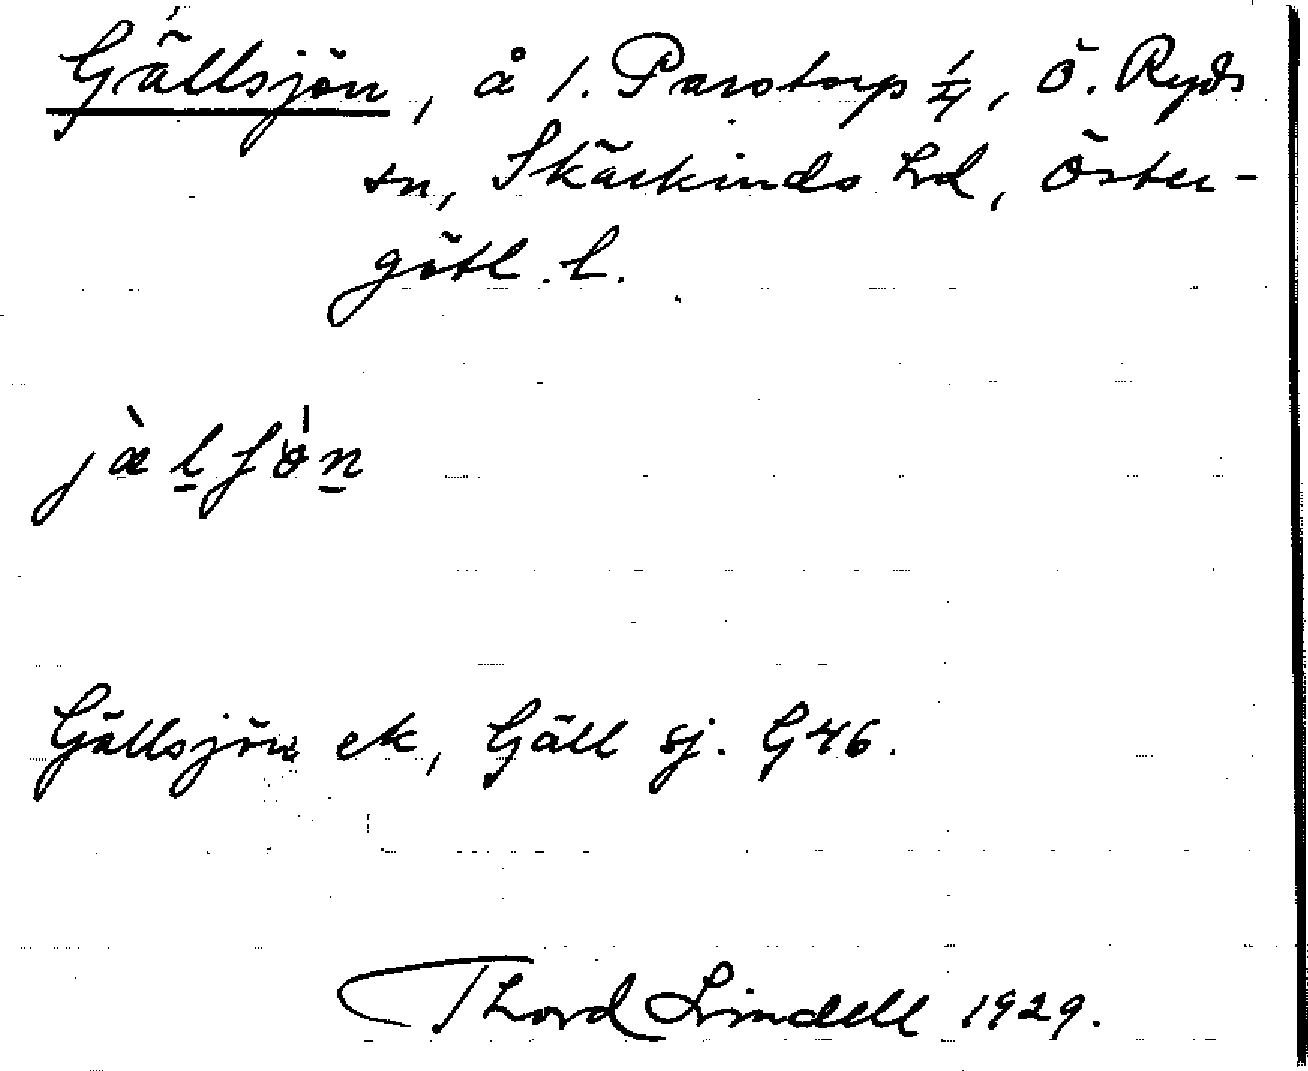 Gällsjön, å 1. Parstorp 1/4, Ö. Ryds
sn, Skärkinds hd, Öster-
götl. l.
jàlʃön
Gällsjön ek, Gäll sj. G46.
Thord Lindell 1929.